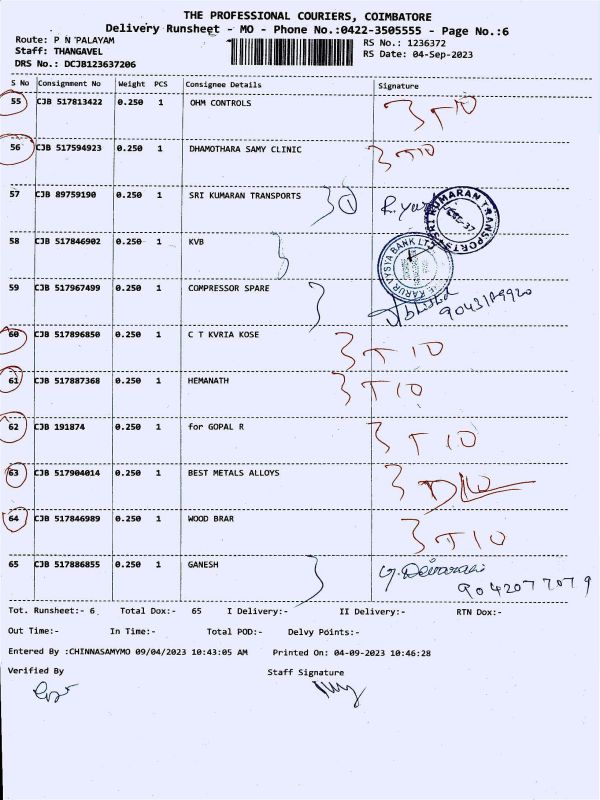 THE PROFESSIONAL COURIERS, COIMBATORE
Delivery Runsheet - MO - Phone No.:0422-3505555 - Page No.:6
Route: P N PALAYAM
Staff: THANGAVEL
DRS No.: DCJB123637206
RS No.: 1236372
RS Date: 04-Sep-2023
S No Consignment No Weight PCS Consignee Details Signature
55 CJB 517813422 0.250 1 OHM CONTROLS
56 CJB 517594923 0.250 1 DHAMOTHARA SAMY CLINIC
57 CJB 89759190 0.250 1 SRI KUMARAN TRANSPORTS
SRI KUMARAN TRANSPORTS
58 CJB 517846902 0.250 1 KVB
KARUR VYSYA BANK LTD
59 CJB 517967499 0.250 1 COMPRESSOR SPARE
60 CJB 517896850 0.250 1 C T KVRIA KOSE
61 CJB 517887368 0.250 1 HEMANATH
62 CJB 191874 0.250 1 for GOPAL R
63 CJB 517904014 0.250 1 BEST METALS ALLOYS
64 CJB 517846989 0.250 1 WOOD BRAR
65 CJB 517886855 0.250 1 GANESH
9042077079
Tot. Runsheet:- 6 Total Dox:- 65 I Delivery:- II Delivery:- RTN Dox:-
Out Time:- In Time:- Total POD:- Delvy Points:-
Entered By :CHINNASAMYMO 09/04/2023 10:43:05 AM Printed On: 04-09-2023 10:46:28
Verified By Staff Signature